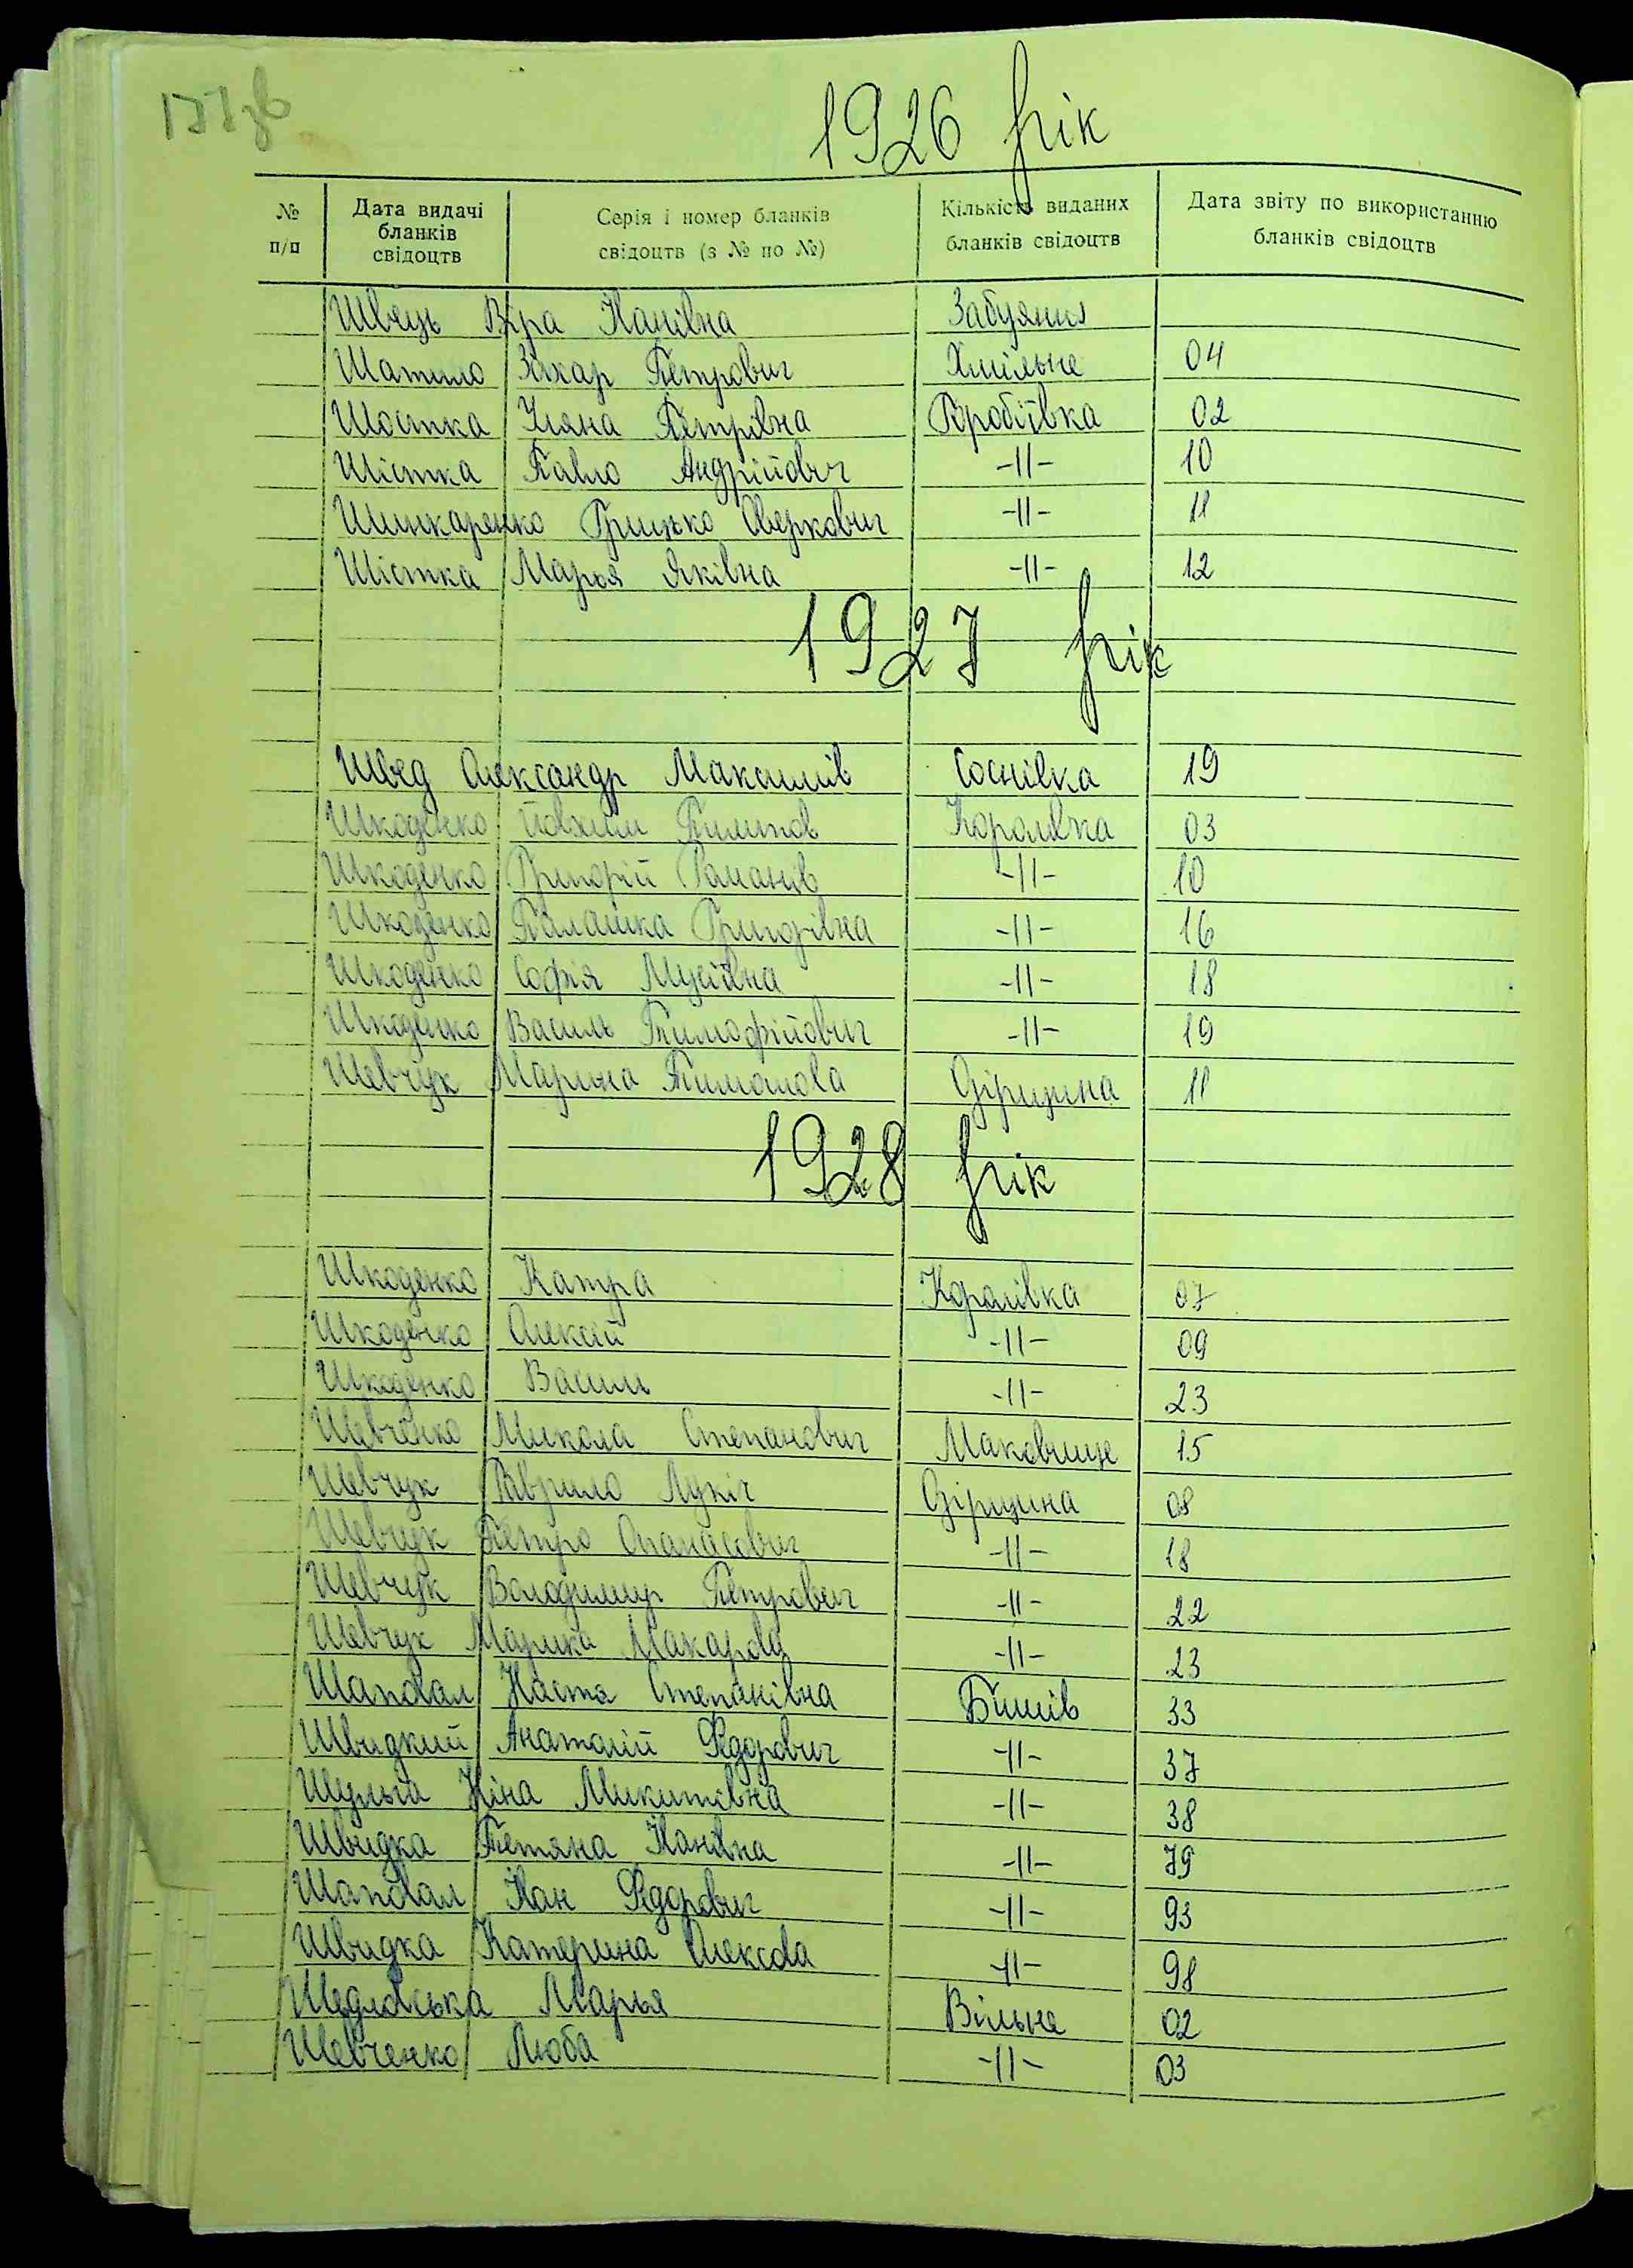 177зв
1926 рік
№ п/п
Дата видачі бланків свідоцтв
Серія і номер бланків свідоцтв (з № по №)
Кількість виданих бланків свідоцтв
Дата звіту по використанню бланків свідоцтв
Швець Віра Іванівна Забуяння
Шатило Захар Петрович Хмільне 04
Шостка Уляна Петрівна Горобіївка 02
Шістка Павло Андрійович -||- 10
Шинкаренко Грицько Оверкович -||- 11
Шістка Марья Яківна -||- 12
1927 рік
Швед Олександр Максимів Соснівка 19
Шкоденко Йовхим Пилипов Королівка 03
Шкоденко Григорій Романів -||- 10
Шкоденко Палашка Григорівна -||- 16
Шкоденко Софія Мусіївна -||- 18
Шкоденко Василь Тимофійович -||- 19
Шевчук Марина Тимошова Юрівщина 11
1928 рік
Шкоденко Катра Королівка 07
Шкоденко Олексій -||- 09
Шкоденко Василь -||- 23
Шевченко Микола Степанович Маковище 15
Шевчук Гаврило Лукіч 08
Шевчук Петро Опанасович -||- 18
Шевчук Володимир Петрович -||- 22
Шевчук Марика Макарова -||- 23
Шаповал Настя Степанівна Бишів 33
Швидкий Анатолій Федорович -||- 37
Шульга Ніна Микитівна -||- 38
Швидка Тетяна Іванівна -||- 79
Шаповал Іван Федорович -||- 93
Швидка Катерина Олексова -||- 98
Шедловська Марья Вільне 02
Шевченко Люба -||- 03